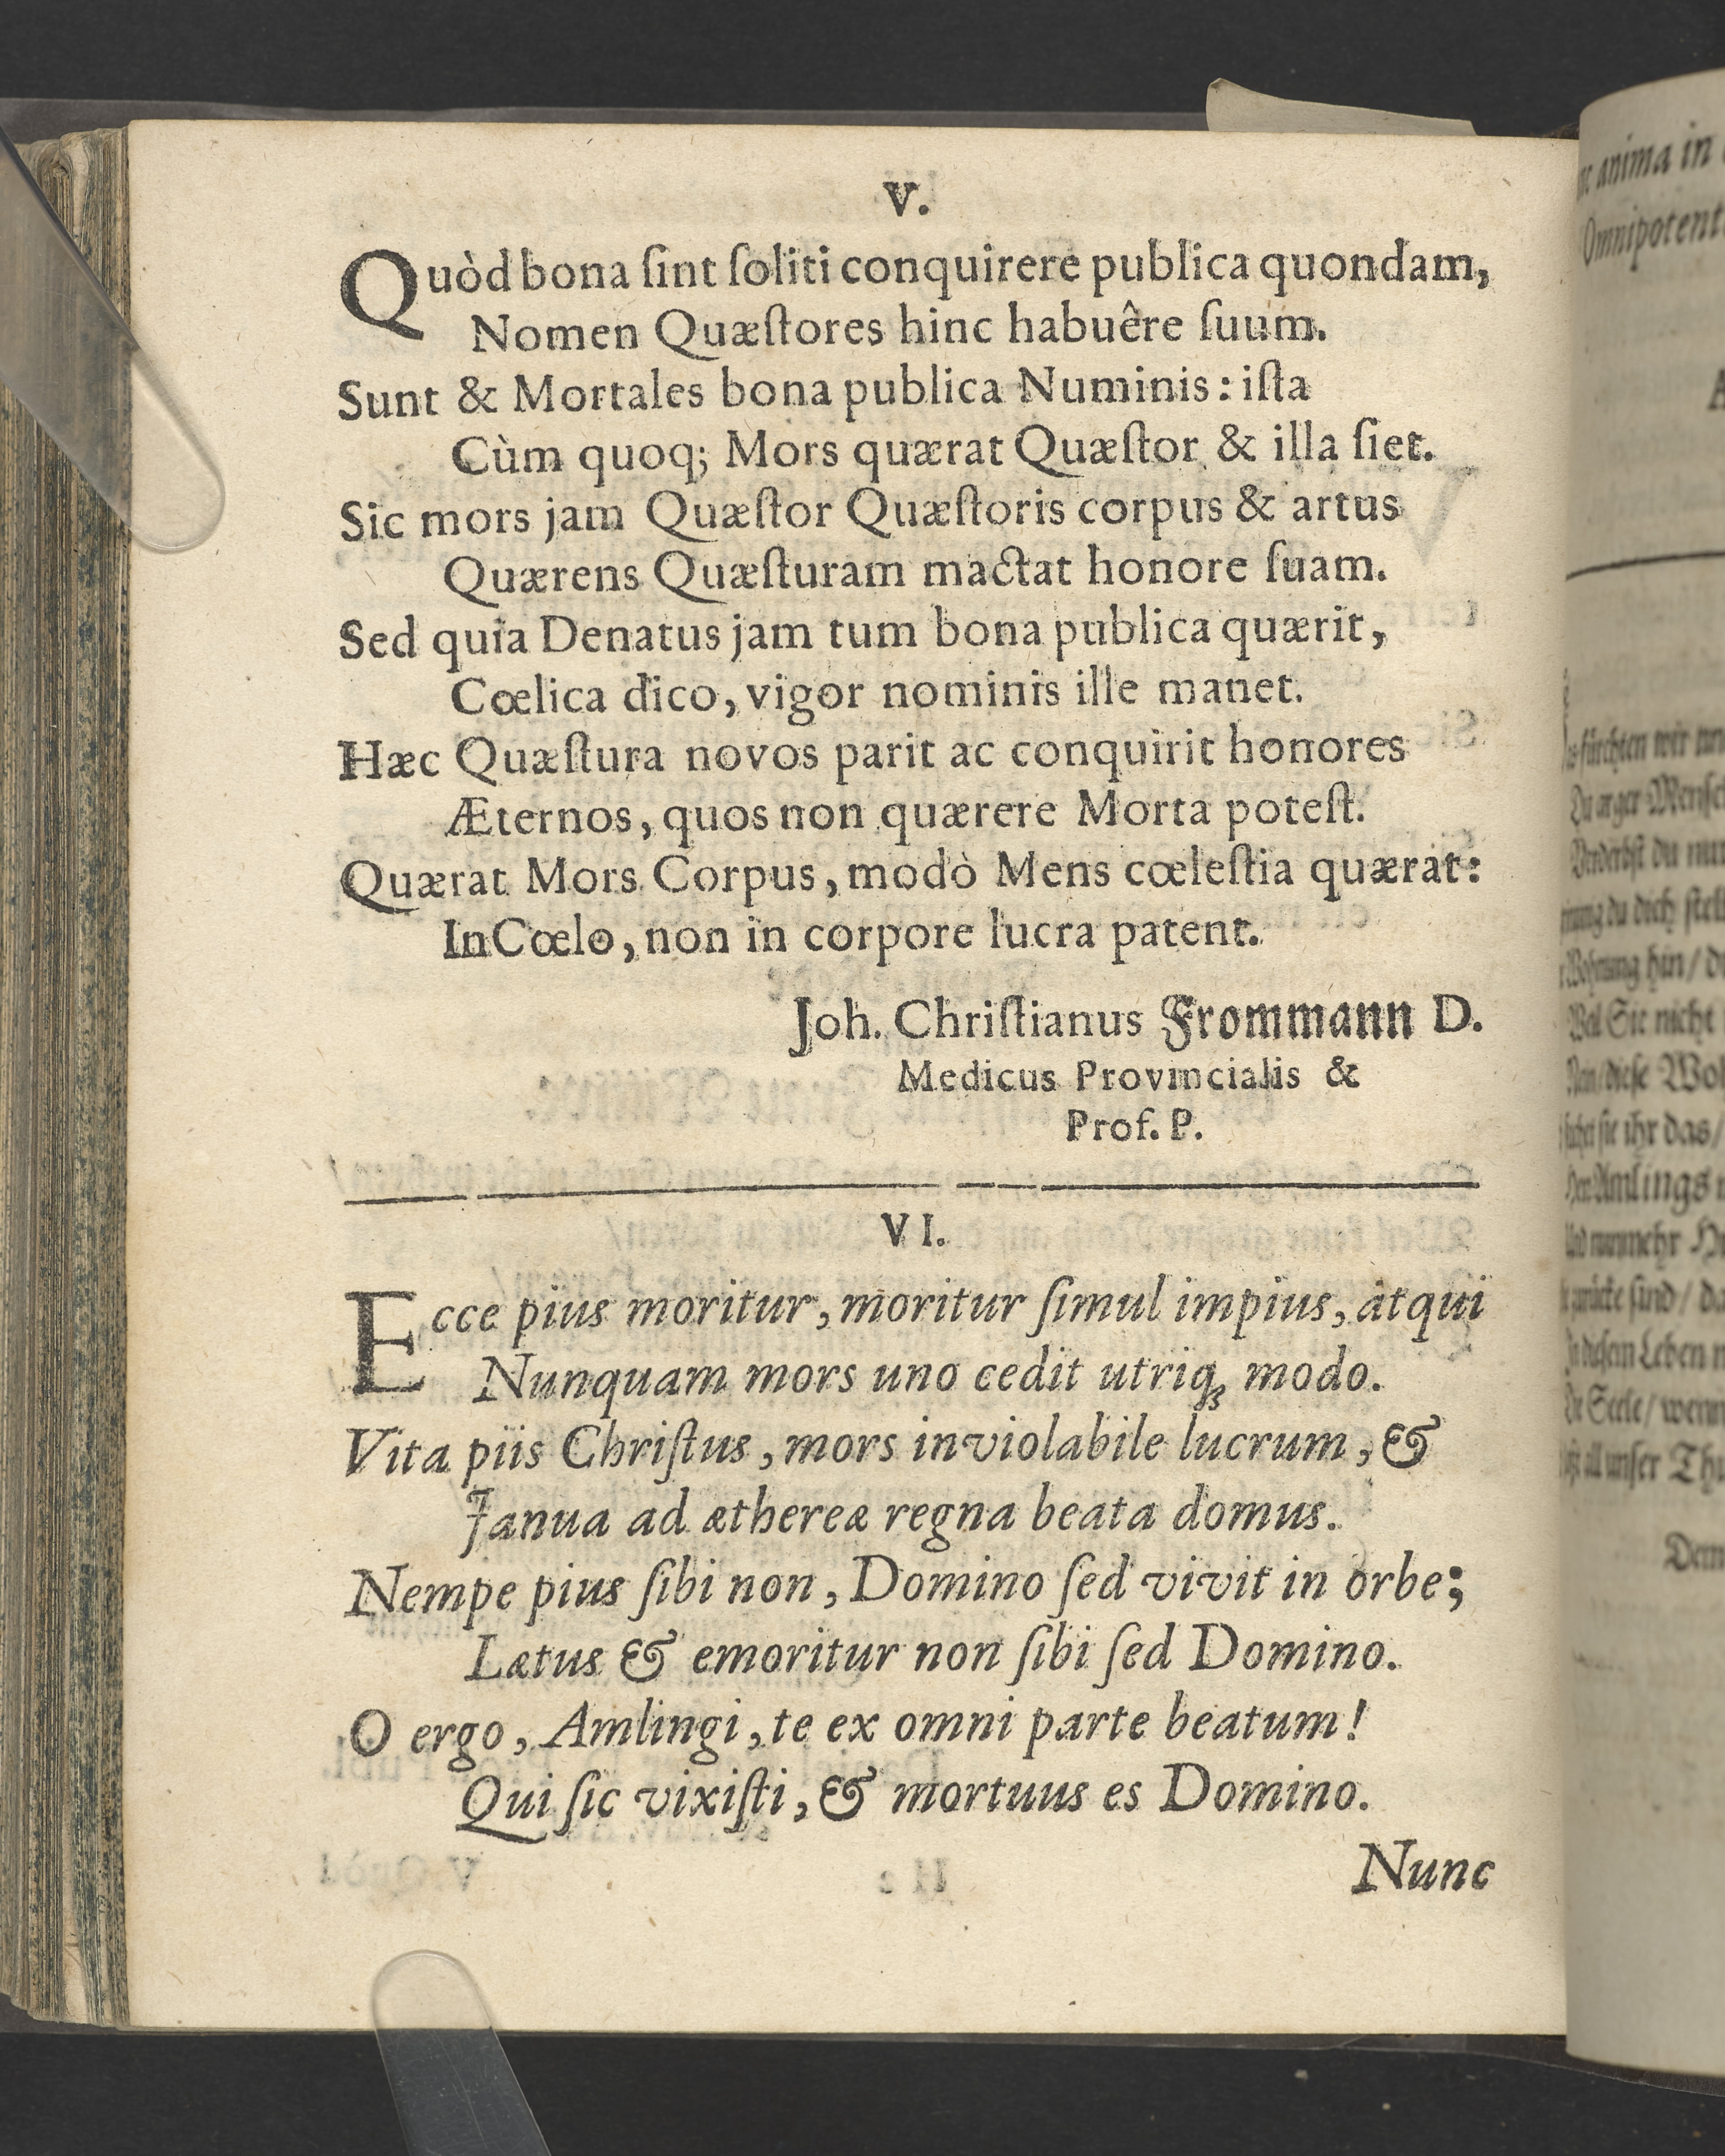 V.
Quòd bona ſint ſoliti conquirere publica quondam,
Nomen Quæſtores hinc habuêre ſuum.
Sunt & Mortales bona publica Numinis: iſta
Cùm quoq; Mors quærat Quæſtor & illa ſiet.
Sic mors jam Quæſtor Quæſtoris corpus & artus
Quærens Quæſturam mactat honore ſuam.
Sed quia Denatus jam tum bona publica quærit,
Cœlica dico, vigor nominis ille manet.
Hæc Quæſtura novos parit ac conquirit honores
Æternos, quos non quærere Morta poteſt.
Quærat Mors Corpus, modò Mens cœleſtia quærat:
In Cœlo, non in corpore lucra patent.
Joh. Chriſtianus Frommann D.
Medicus Provincialis &
Prof. P.
VI.
Ecce pius moritur, moritur ſimul impius, atqui
Nunquam mors uno cedit utriqꝫ modo.
Vita piis Chriſtus, mors inviolabile lucrum, &
Janua ad æthereæ regna beata domus.
Nempe pius ſibi non, Domino ſed vivit in orbe;
Lætus & emoritur non ſibi ſed Domino.
O ergo, Amlingi, te ex omni parte beatum!
Qui ſic vixiſti, & mortuus es Domino.
Nunc
anima in
Omnipotent
fürchten wir
Du arger
du
du dich
hin / 
Sie nicht
/ dieſe
ſie ihr das /
Amlings
nunmehr
ſind /
Leben
Seele / wenn
all unſer